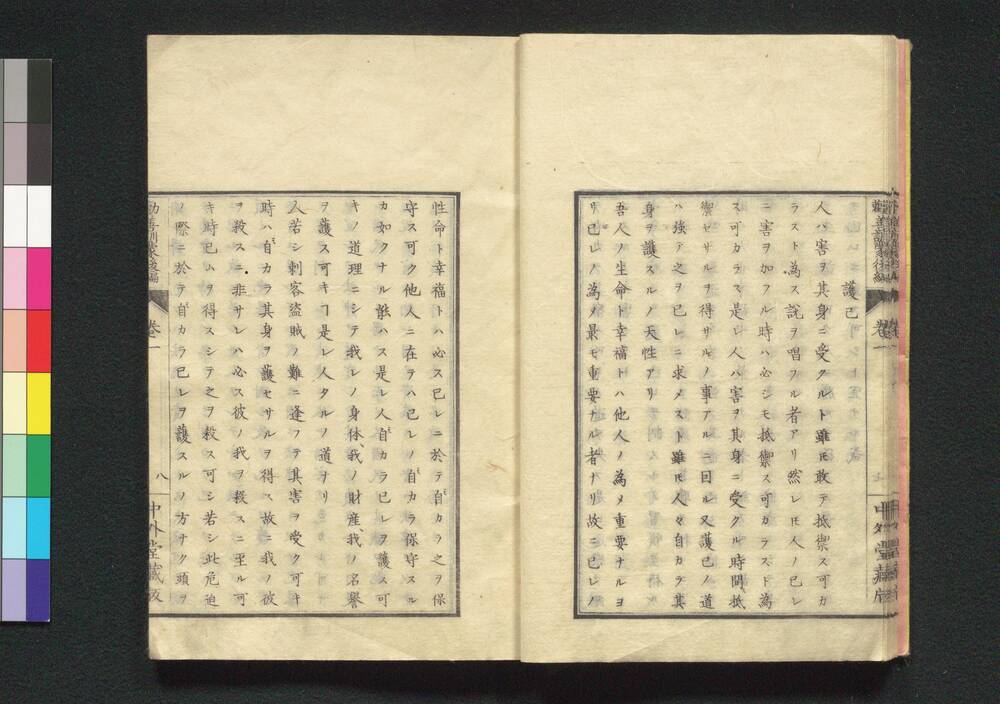 護己
人ハ害ヲ其身ニ受クルト雖𪜈敢テ抵禦ス可カ
ラスト為ス説ヲ唱フル者アリ然レ𪜈人ノ己レ
ニ害ヲ加フル時ハ必シモ抵禦ス可カラスト為
ス可カラス是レ人ハ害ヲ其身ニ受クル時間抵
禦セサルヲ得サルノ事アルニ因ル又護己ノ道
ハ強テ之ヲ己レニ求メスト雖𪜈人々自カラ其
身ヲ護スルノ天性アリ
吾人ノ生命ト幸福トハ他人ノ為メ重要ナルヨ
リ己レノ為メ最モ重要ナルル者ナリ故ニ己レノ
性命ト幸福トハ必ス己レニ於テ自カラ之ヲ保
守ス可ク他人ニ在テハ己レノ自カラ保守スル
カ如クナル能ハス是レ人自カラ己レヲ護ス可
キノ道理ニシテ我レノ身体、我レノ財産、我レノ名誉
ヲ護ス可キヿ是レ人タルノ道ナリ
人若シ刺客盗賊ノ難ニ逢フテ其害ヲ受ク可キ
時ハ自カラ其身ヲ護セサルヲ得ス故ニ我ノ彼
ヲ殺スニ非サレハ必ス彼ノ我ヲ殺スニ至ル可
キ時已ムヲ得スシテ之ヲ殺ス可シ若シ此危迫
ノ際ニ於テ自カラ己レヲ護スルノ方ナク頭ヲ
勧善訓蒙後編
巻一
八
中外堂藏版